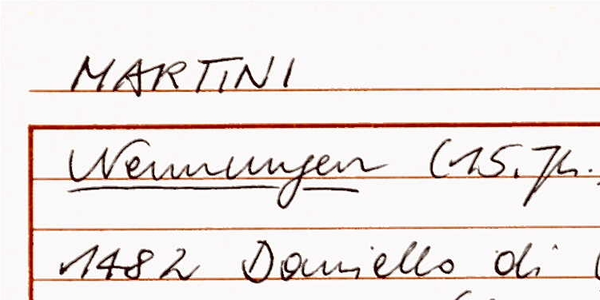 MARTINI
Nennungen (15. Jh.
1482 Daniello di